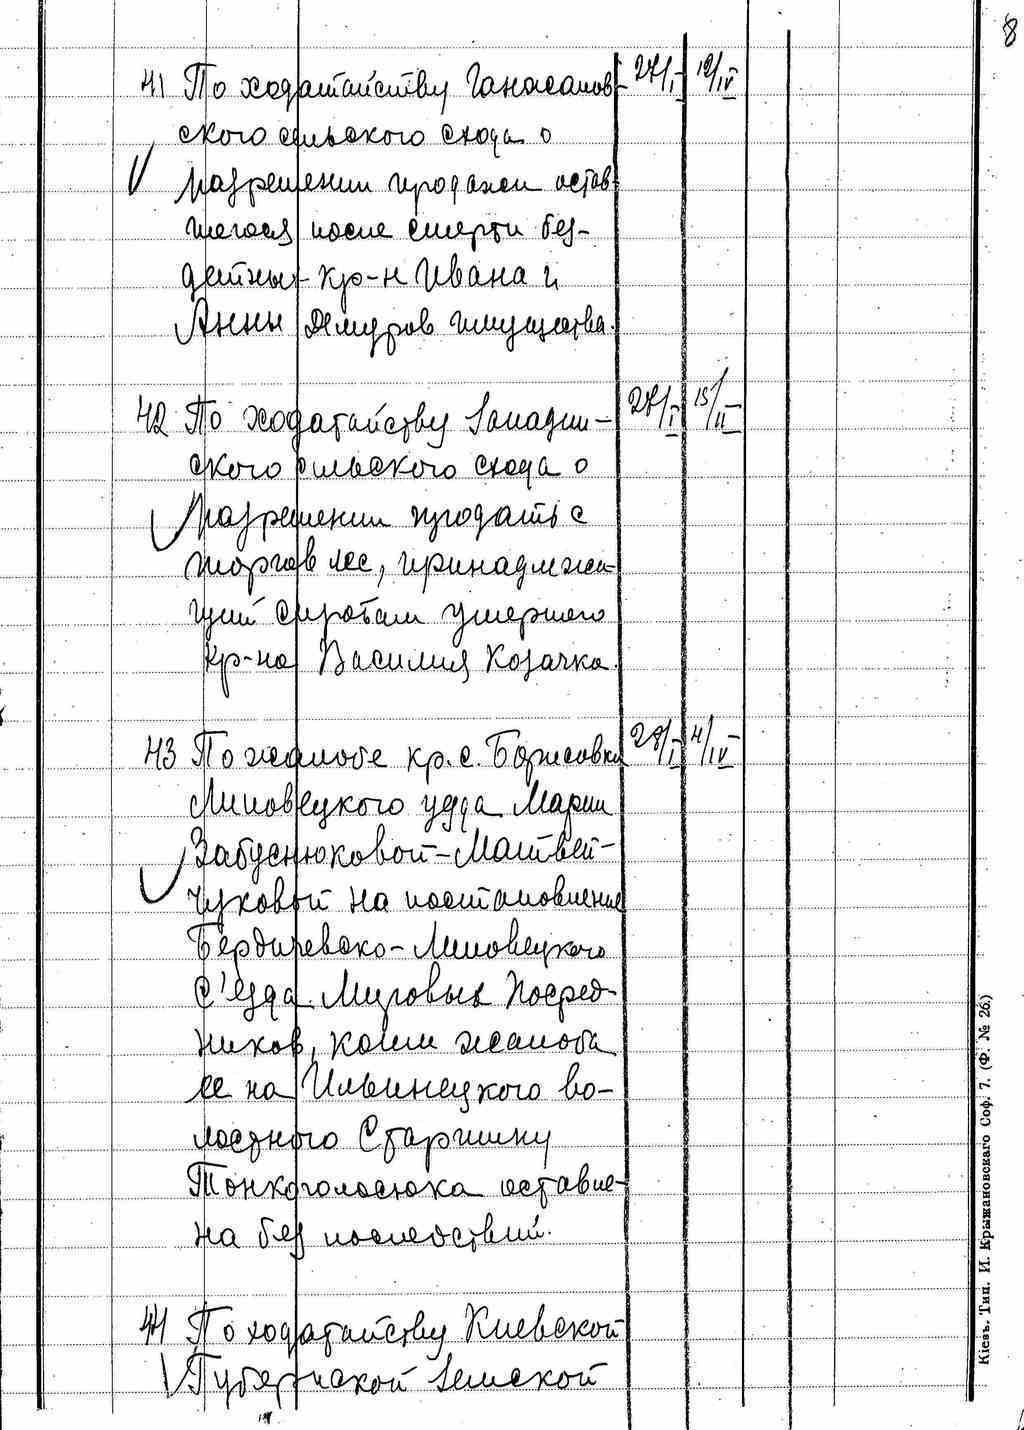 8
41 По ходатайству Ганасапов- 27/I 19/IV
ского сельского схода о
разрешении продажи остав-
шегося после смерти без-
детных кр-н Ивана и
Анны имущества.
42 По ходатайству Западин- 27/I 15/II
ского сельского схода о
разрешении продать с
торгов лес, принадлежа-
щий сиротам умершего
кр-на Василия Козачка.
43 По жалобе кр. с. Борисовки 28/I 4/IV
Липовецкого уезда Марии
Забуснюковой-Матвей-
чуковой на постановление
Бердичевско-Липовецкого
с'езда Мировых Посред-
ников, коим жалоба
ее на Ильинецкого во-
лостного Старшину
Тонкоголосюка оставле-
на без последствий.
44 По ходатайству Киевской
Губернской Земской
Кіевъ. Тип. И. Крыжановскаго Соф. 7. (Ф. № 26.)